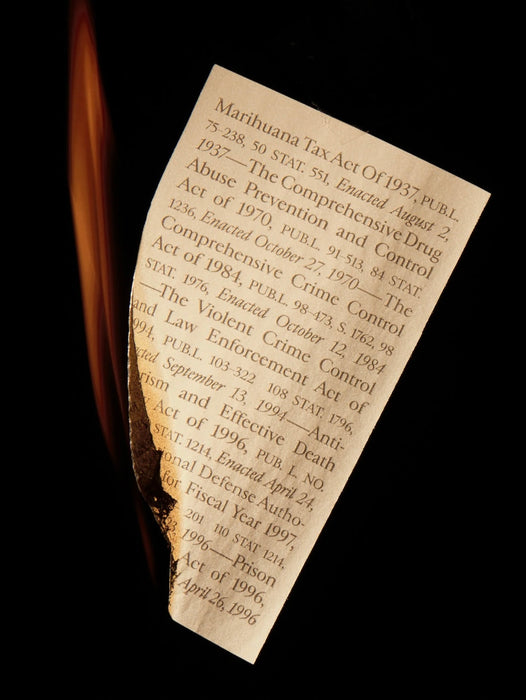 Marihuana Tax Act Of 1937, PUB.L.
75-238, 50 STAT. 551, Enacted August 2,
1937—The Comprehensive Drug
Abuse Prevention and Control
Act of 1970, PUB.L. 91-513, 84 STAT.
1236, Enacted October 27, 1970—The
Comprehensive Crime Control
Act of 1984, PUB.L. 98-473, S. 1762, 98
STAT. 1976, Enacted October 12, 1984
—The Violent Crime Control
and Law Enforcement Act of
1994, PUB.L. 103-322 108 STAT. 1796,
cted September 13, 1994—Anti-
rism and Effective Death
Act of 1996, PUB. L. NO.
STAT. 1214, Enacted April 24,
onal Defense Autho-
for Fiscal Year 1997,
201 110 STAT 1214,
1996—Prison
Act of 1996,
April 26, 1996